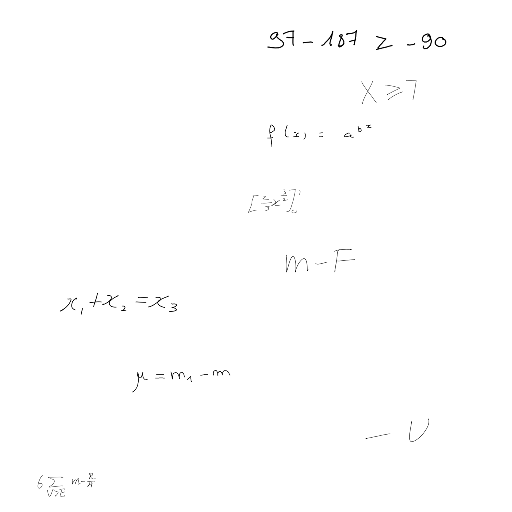 97 - 187 ≥ -90
X ⩾ 7
f(x) = a^{b^x}
[\frac{2}{3}x^{\frac{3}{2}}]_0^1
m - F
x_1 + x_2 = x_3
μ = m_1 - m
- U